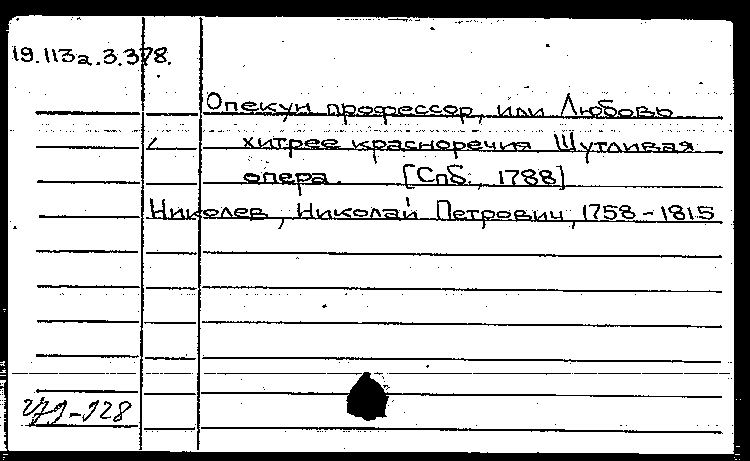 19.113а.3.378.
Опекун профессор, или Любовь
хитрее красноречия Шутливая
опера. [Спб., 1788]
Николев, Николай Петрович, 1758-1815